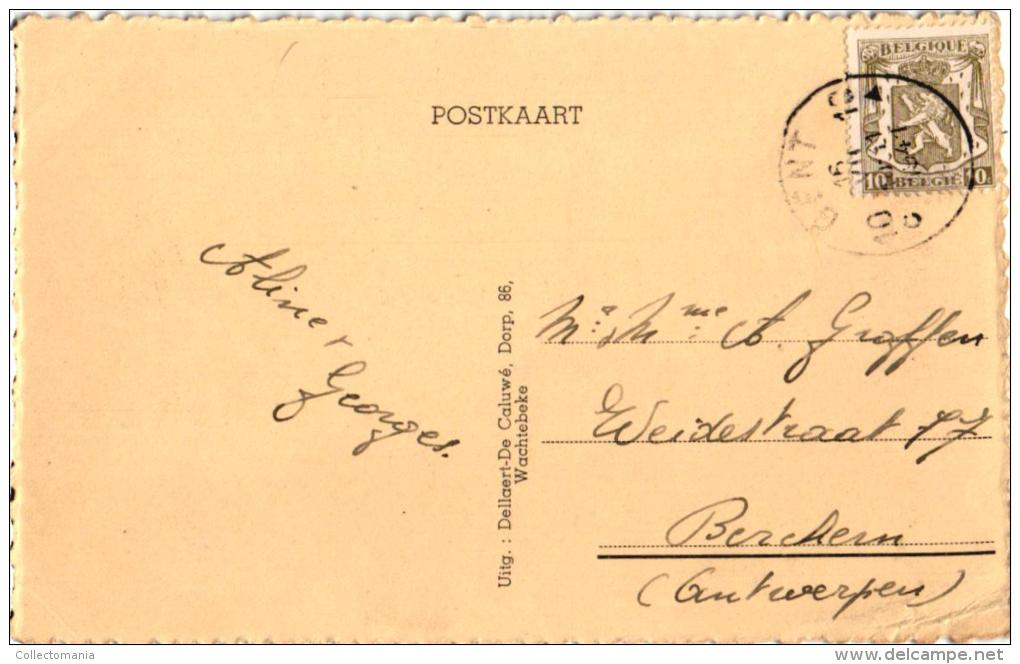 POSTKAART
BELGIQUE
10 BELGIË 10
GENT
Aline +
Georges.
Uitg. : Dellaert-De Caluwé, Dorp, 86,
Wachtebeke
Mr & Mme A. Groffen
Weidestraat 77
Berchem
(Antwerpen)
Collectomania
www.delcampe.net